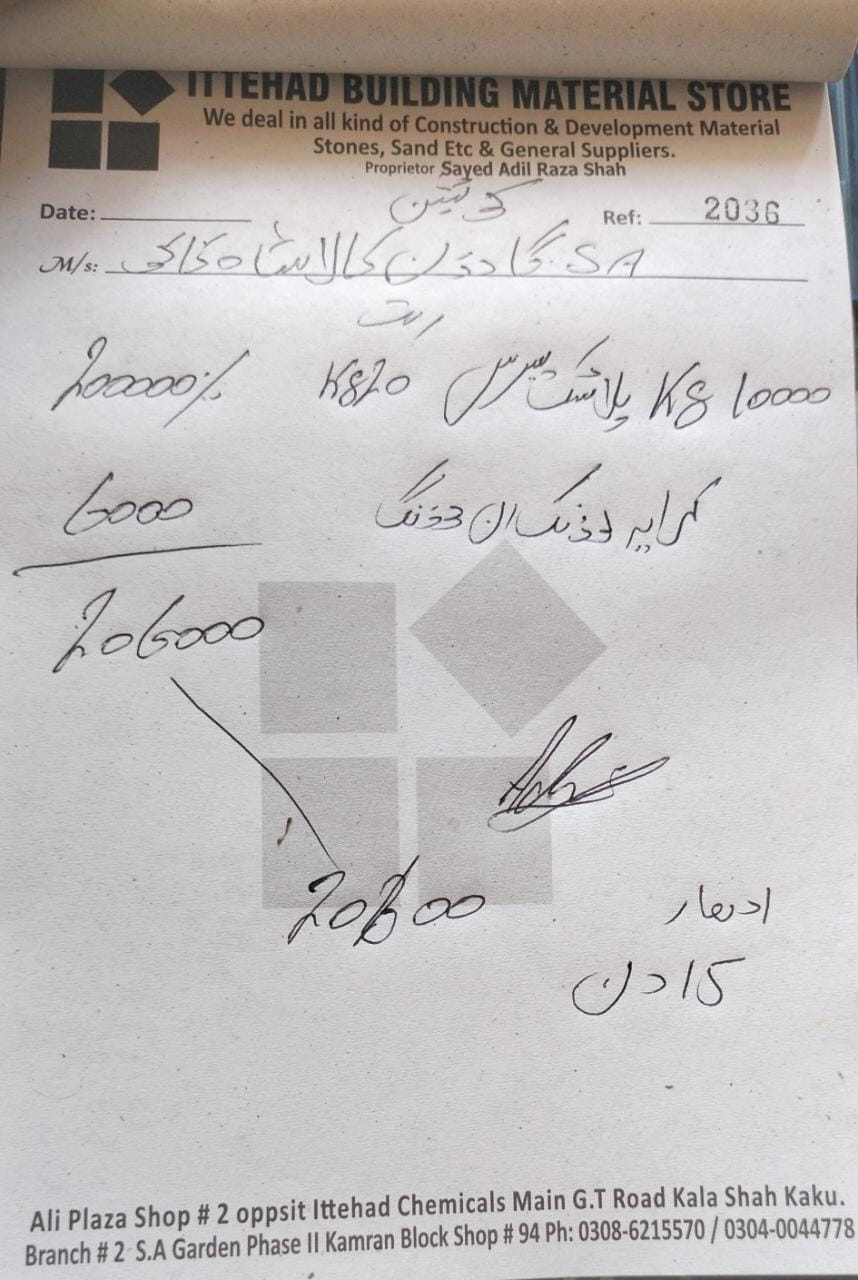 ITTEHAD BUILDING MATERIAL STORE
We deal in all kind of Construction & Development Material
Stones, Sand Etc & General Suppliers.
Proprietor Sayed Adil Raza Shah
Date:
Ref: 2036
M/s: SA گارڈن کالا شاہ کاکو
ریٹ
10000 Kg پلاسٹک Kg 20 200000/.
کرایہ لوڈنگ ان لوڈنگ 6000
206000
ادھار
15 دن
Ali Plaza Shop # 2 oppsit Ittehad Chemicals Main G.T Road Kala Shah Kaku.
Branch # 2 S.A Garden Phase II Kamran Block Shop # 94 Ph: 0308-6215570 / 0304-0044778